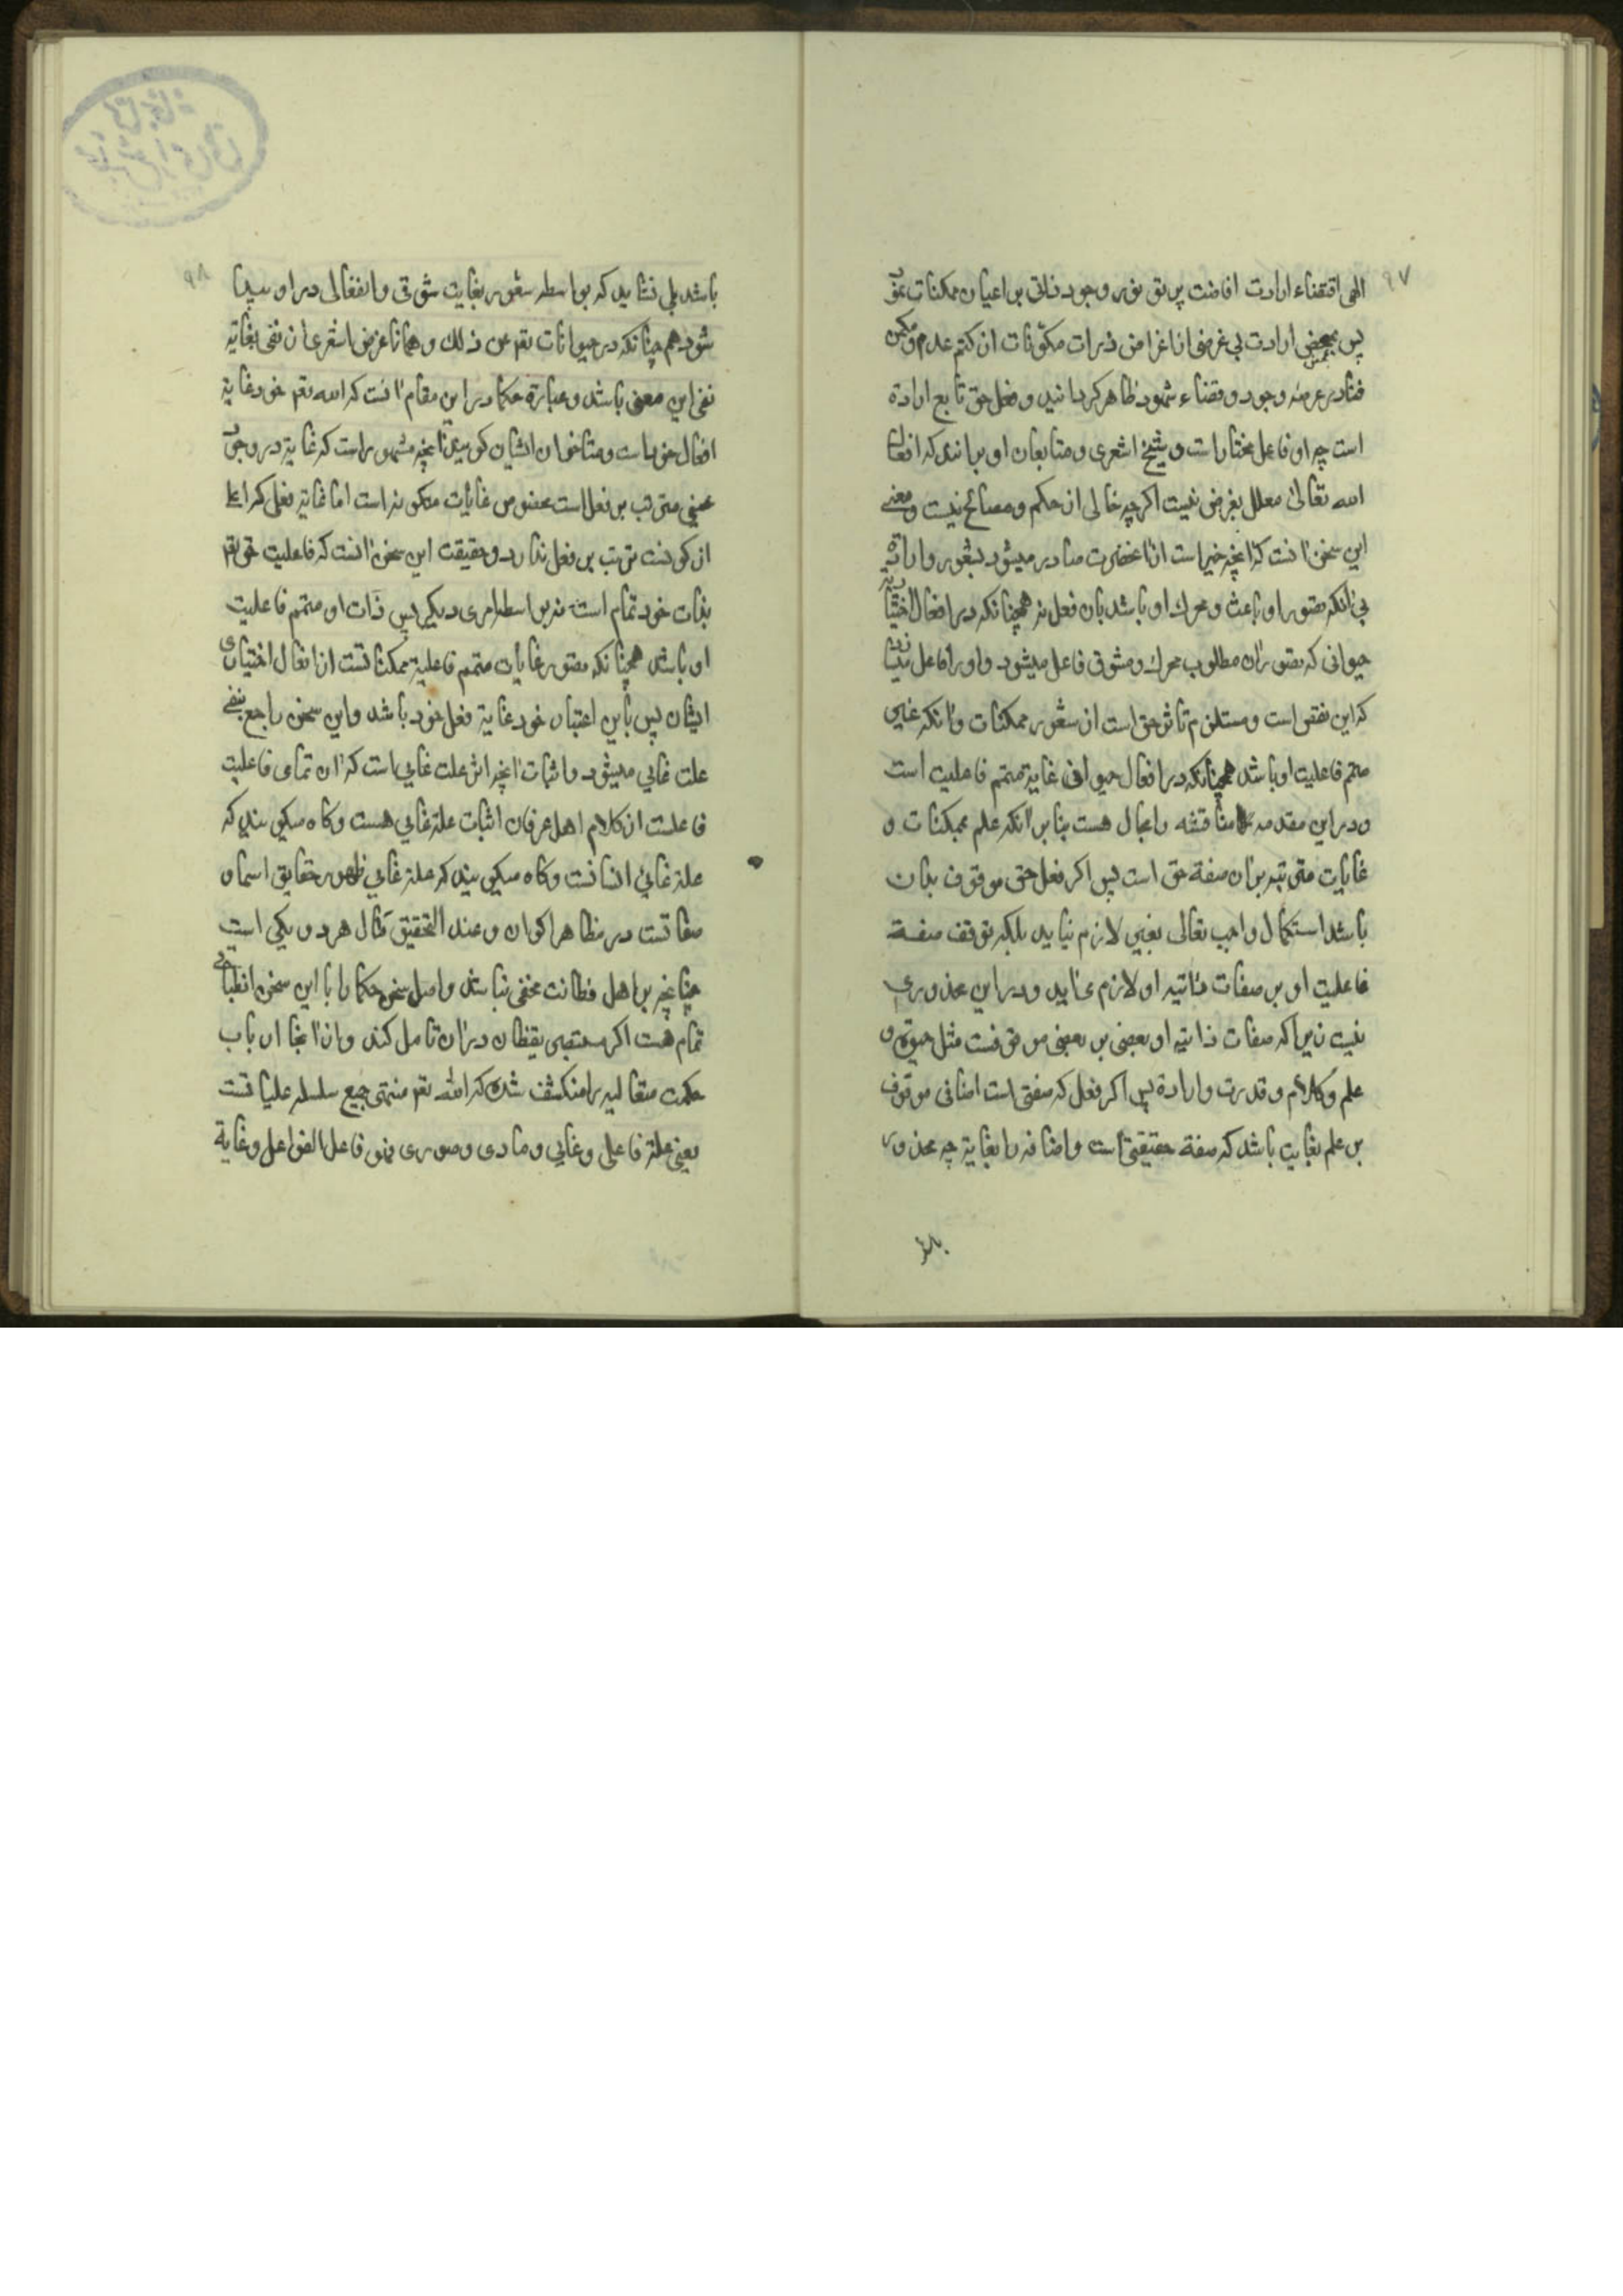 ۹۷
الهی اقتضاء ارادت افاضت پرتو نور وجود ذاتی بر اعیان ممکنات
پس بمحض ارادت بی غرضی از اغراض ذرات مکونات از کتم عدم و مکمن
فنا در عرصه وجود و فضاء شهود ظاهر کردانید و فعل حق تابع اراده
است چه او فاعل مختار است و شیخ اشعری و متابعان او برانند که افعال
الله تعالی معلل بغرض نیست اکرچه خالی از حکم و مصالح نیست و معنی
این سخن آنست که آنچه خیر است از آنحضرت صادر میشود بشعور و اراده
بی آنکه تصور او باعث و محرک او باشد بان فعل نه همچنانکه در افعال اختیاریه
حیوانی که تصور آن مطلوب محرک و مشوق فاعل میشود و او را فاعل
که این نقص است و مستلزم تاثر حق است از شعور ممکنات و آنکه غایی
متمم فاعلیت او باشد همچنانکه در افعال حیوانی غایة متمم فاعلیت است
و در این مقدمه مناقشه را مجال هست بنابر آنکه علم بممکنات و
غایات مترتبه بر آن صفة حق است پس اکر فعل حق موقوف بدان
باشد استکمال واجب تعالی بغیر لازم نیاید بلکه توقف صفة
فاعلیت او بر صفات ذاتیه او لازم می‌آید و در این محذوری
نیست زیرا که صفات ذاتیه او بعضی بر بعضی موقوفست مثل حیوة و
علم و کلام و قدرت و اراده پس اکر فعل که صفتی است اضافی موقوف
بر علم بغایت باشد که صفة حقیقی است و اضافه را بغایة چه محذور
باشد
۹۸
باشد بلی نشاید که بواسطه شعور بغایت شوقی و انفعالی در او پیدا
شود هم چنانکه در حیوانات تعم عن ذلک و همانا غرض اشعری از نفی غایة
نفی این معنی باشد و عبارة حکما در این مقام آنست که الله تعم خود غایة
افعال خود است و متاخران ایشان کویند آنچه مشهور است که غایة در وجود
عینی مترتب بر فعل است مخصوص غایات متکونه است اما غایة فعلی که اعلی
از کونست ترتب بر فعل ندارد و حقیقت این سخن آنست که فاعلیت حق تعم
بذات خود تمام است نه بواسطه امری دیکر پس ذات او متمم فاعلیت
او باشد همچنانکه تصور غایات متمم فاعلیة ممکناتست از افعال اختیاری
ایشان پس باین اعتبار خود غایة فعل خود باشد و این سخن راجع بنفی
علت غایی میشود و اثبات آنچه اثر علت غایی است که آن تمامی فاعلیت
فاعلست از کلام اهل عرفان اثبات علة غایی هست و کاه میکویند که
علة غایی انسانست و کاه میکویند که علة غایی ظهور حقایق اسما و
صفاتست در مظاهر اکوان و عند التحقیق مآل هر دو یکی است
چنانچه بر اهل فطانت مخفی نباشد و اصل سخن حکما را با این سخن انطباقی
تمام هست اکر مستبصر یقظان در آن تامل کند و از آنجا ارباب
حکمت متعالیه را منکشف شد که الله تعم منتهی جمیع سلسله علیاتست
یعنی علة فاعلی و غایی و مادی و صوری فهو فاعل الفواعل و غایة